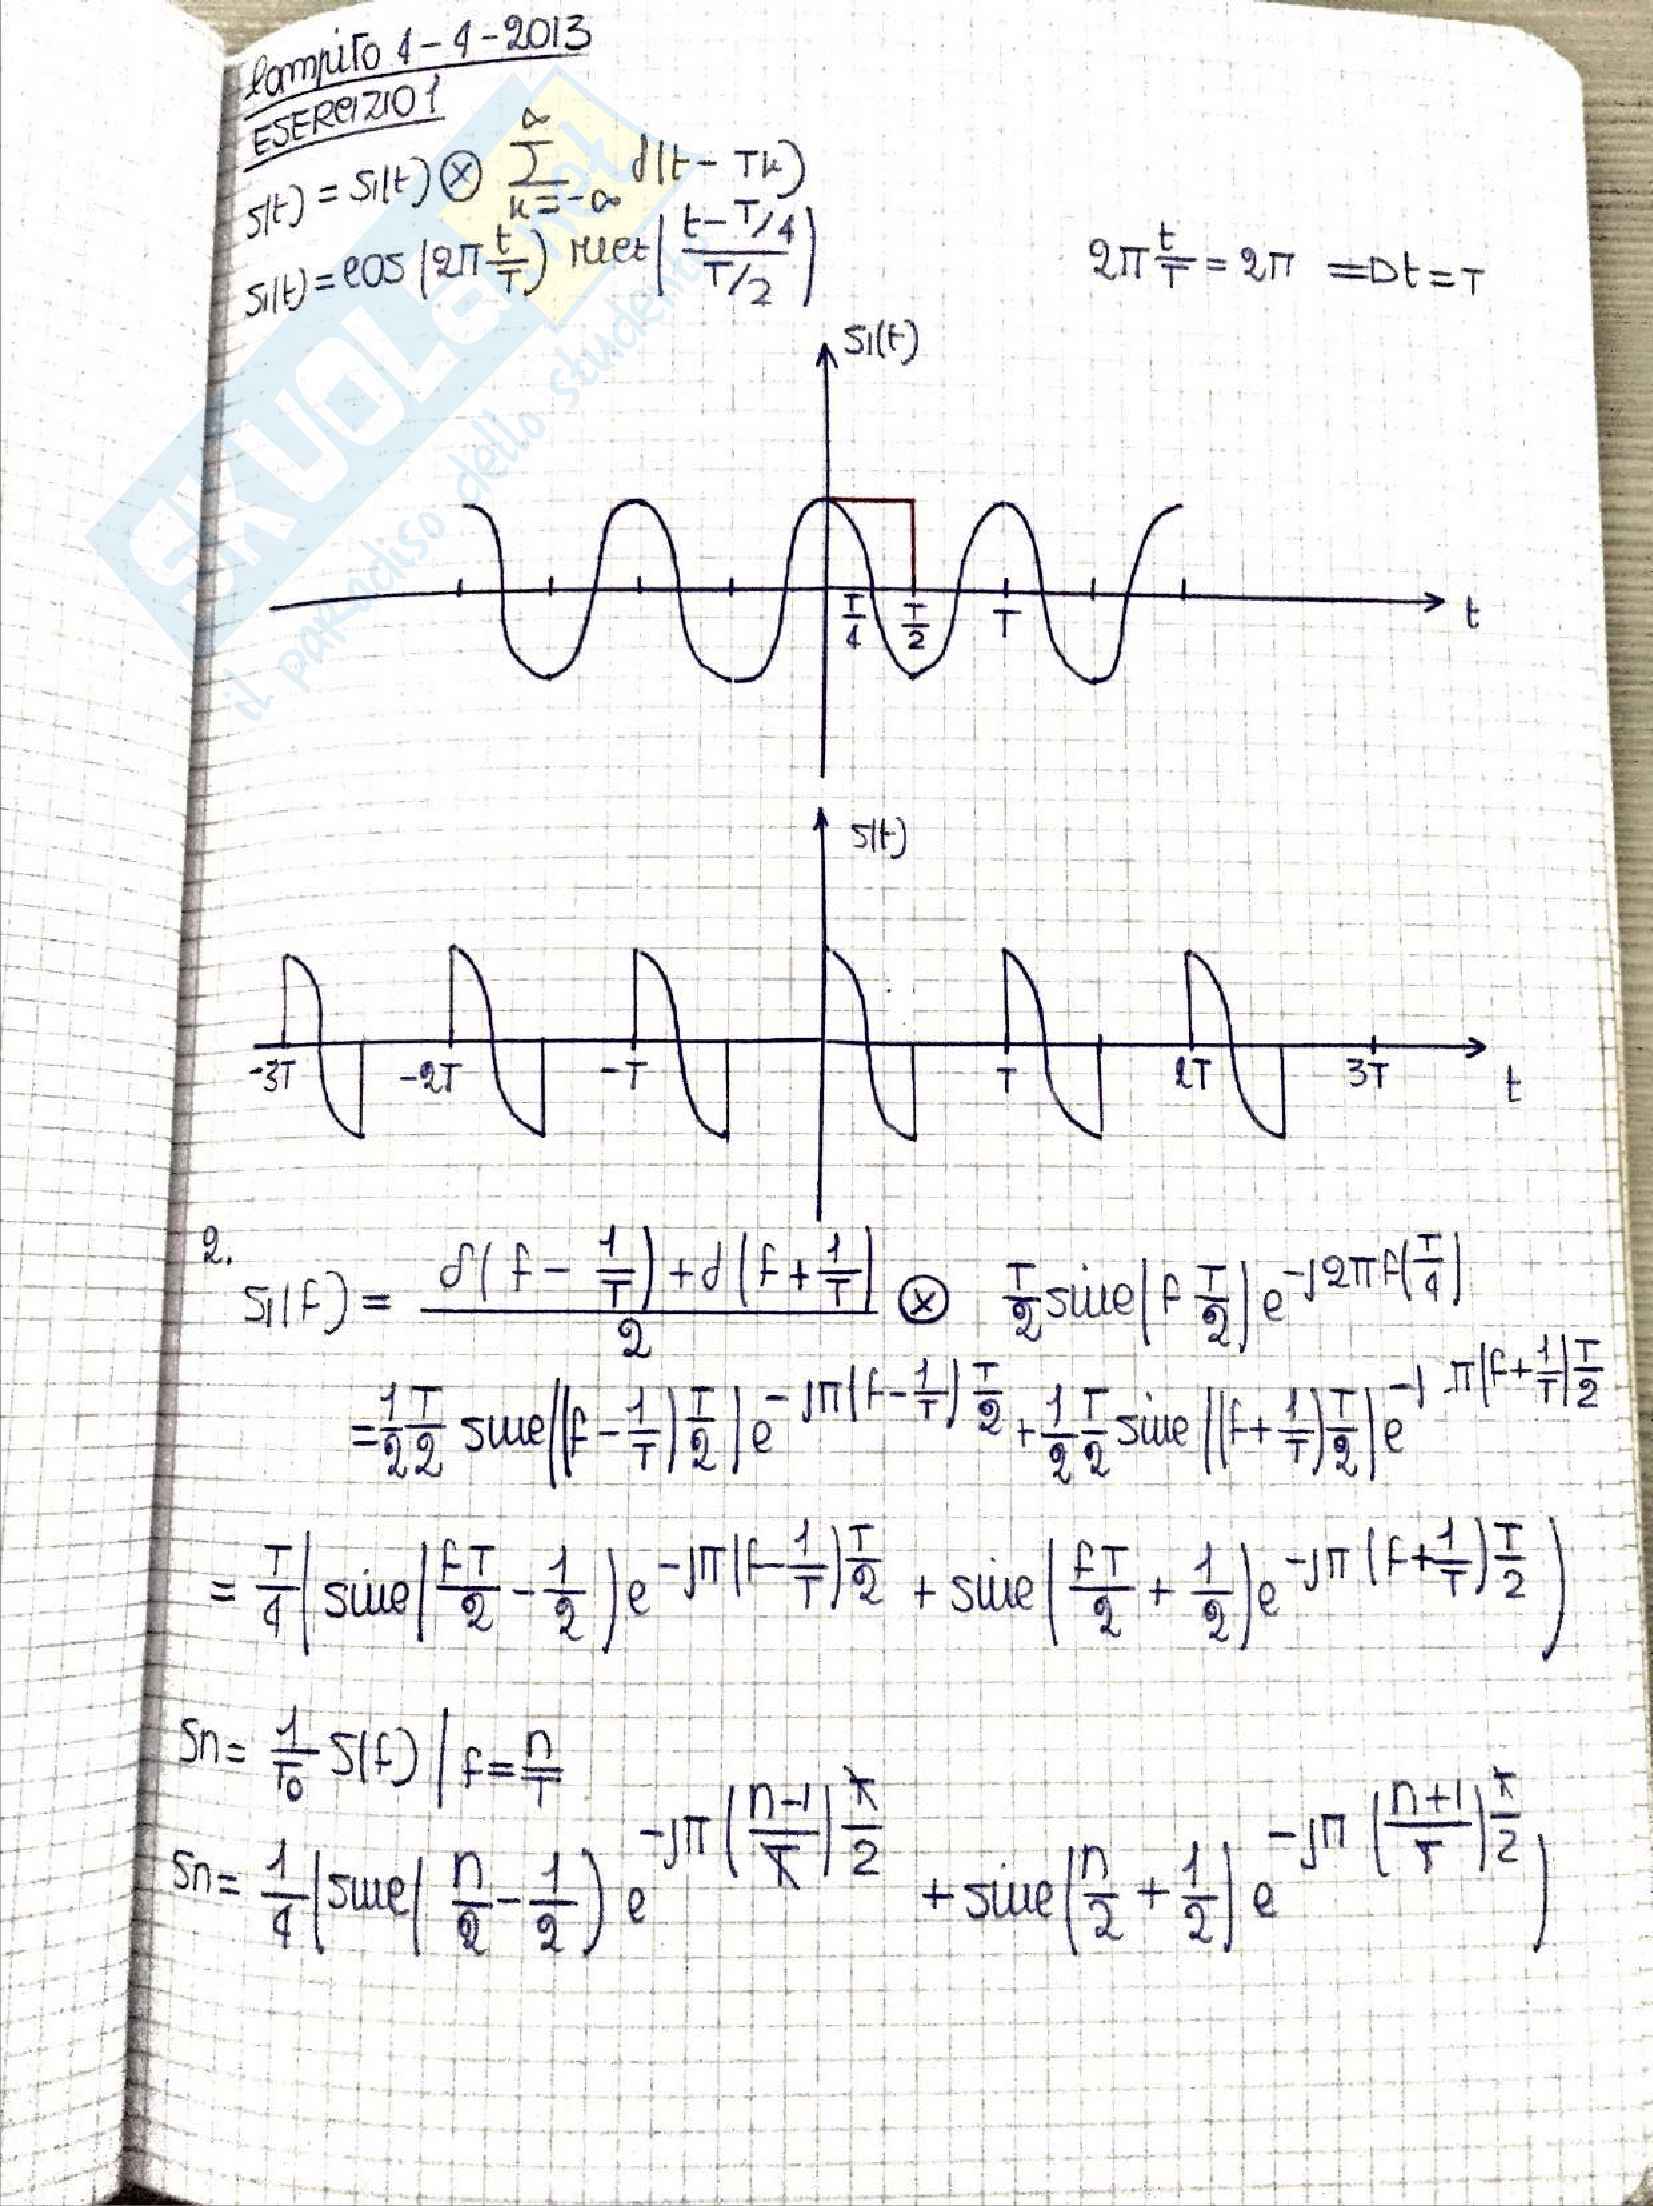 Compito 4-4-2013
ESERCIZIO 1
s(t) = s1(t) ⊗ ∑_{k=-∞}^{∞} δ(t - Tk)
s1(t) = cos(2π t/T) rect((t - T/4)/(T/2))
2π t/T = 2π => t = T
s1(t)
T/4 T/2 T t
s(t)
-3T -2T -T T 2T 3T t
2.
S1(f) = (δ(f - 1/T) + δ(f + 1/T))/2 ⊗ T/2 sinc(f T/2) e^{-j2πf(T/4)}
= 1/2 T/2 sinc((f - 1/T) T/2) e^{-jπ(f - 1/T) T/2} + 1/2 T/2 sinc((f + 1/T) T/2) e^{-jπ(f + 1/T) T/2}
= T/4 (sinc(fT/2 - 1/2) e^{-jπ(f - 1/T) T/2} + sinc(fT/2 + 1/2) e^{-jπ(f + 1/T) T/2})
Sn = 1/T0 S(f) | f = n/T
Sn = 1/4 (sinc(n/2 - 1/2) e^{-jπ((n-1)/T) T/2} + sinc(n/2 + 1/2) e^{-jπ((n+1)/T) T/2})
SKUOLA.net
il paradiso dello studente